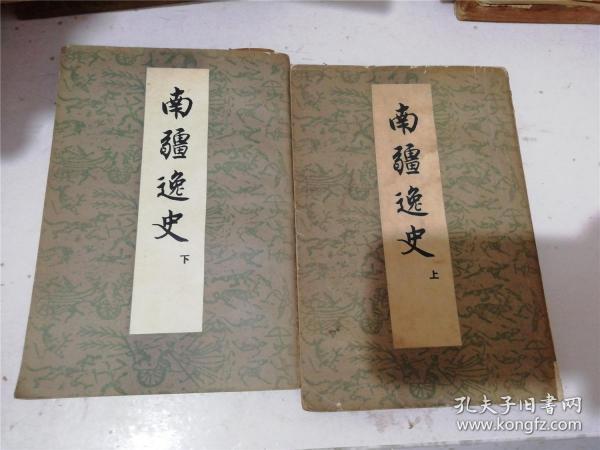 南疆逸史
下
南疆逸史
上
孔夫子旧书网
www.kongfz.com